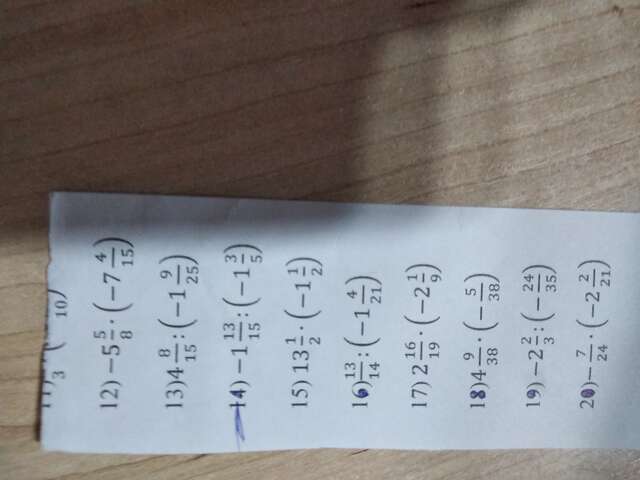 12) −5 5/8 · (−7 4/15)
13) 4 8/15 : (−1 9/25)
14) −1 13/15 : (−1 3/5)
15) 13 1/2 · (−1 1/2)
16) 13/14 : (−1 4/21)
17) 2 16/19 · (−2 1/9)
18) 4 9/38 · (−5/38)
19) −2 2/3 : (−24/35)
20) −7/24 · (−2 2/21)